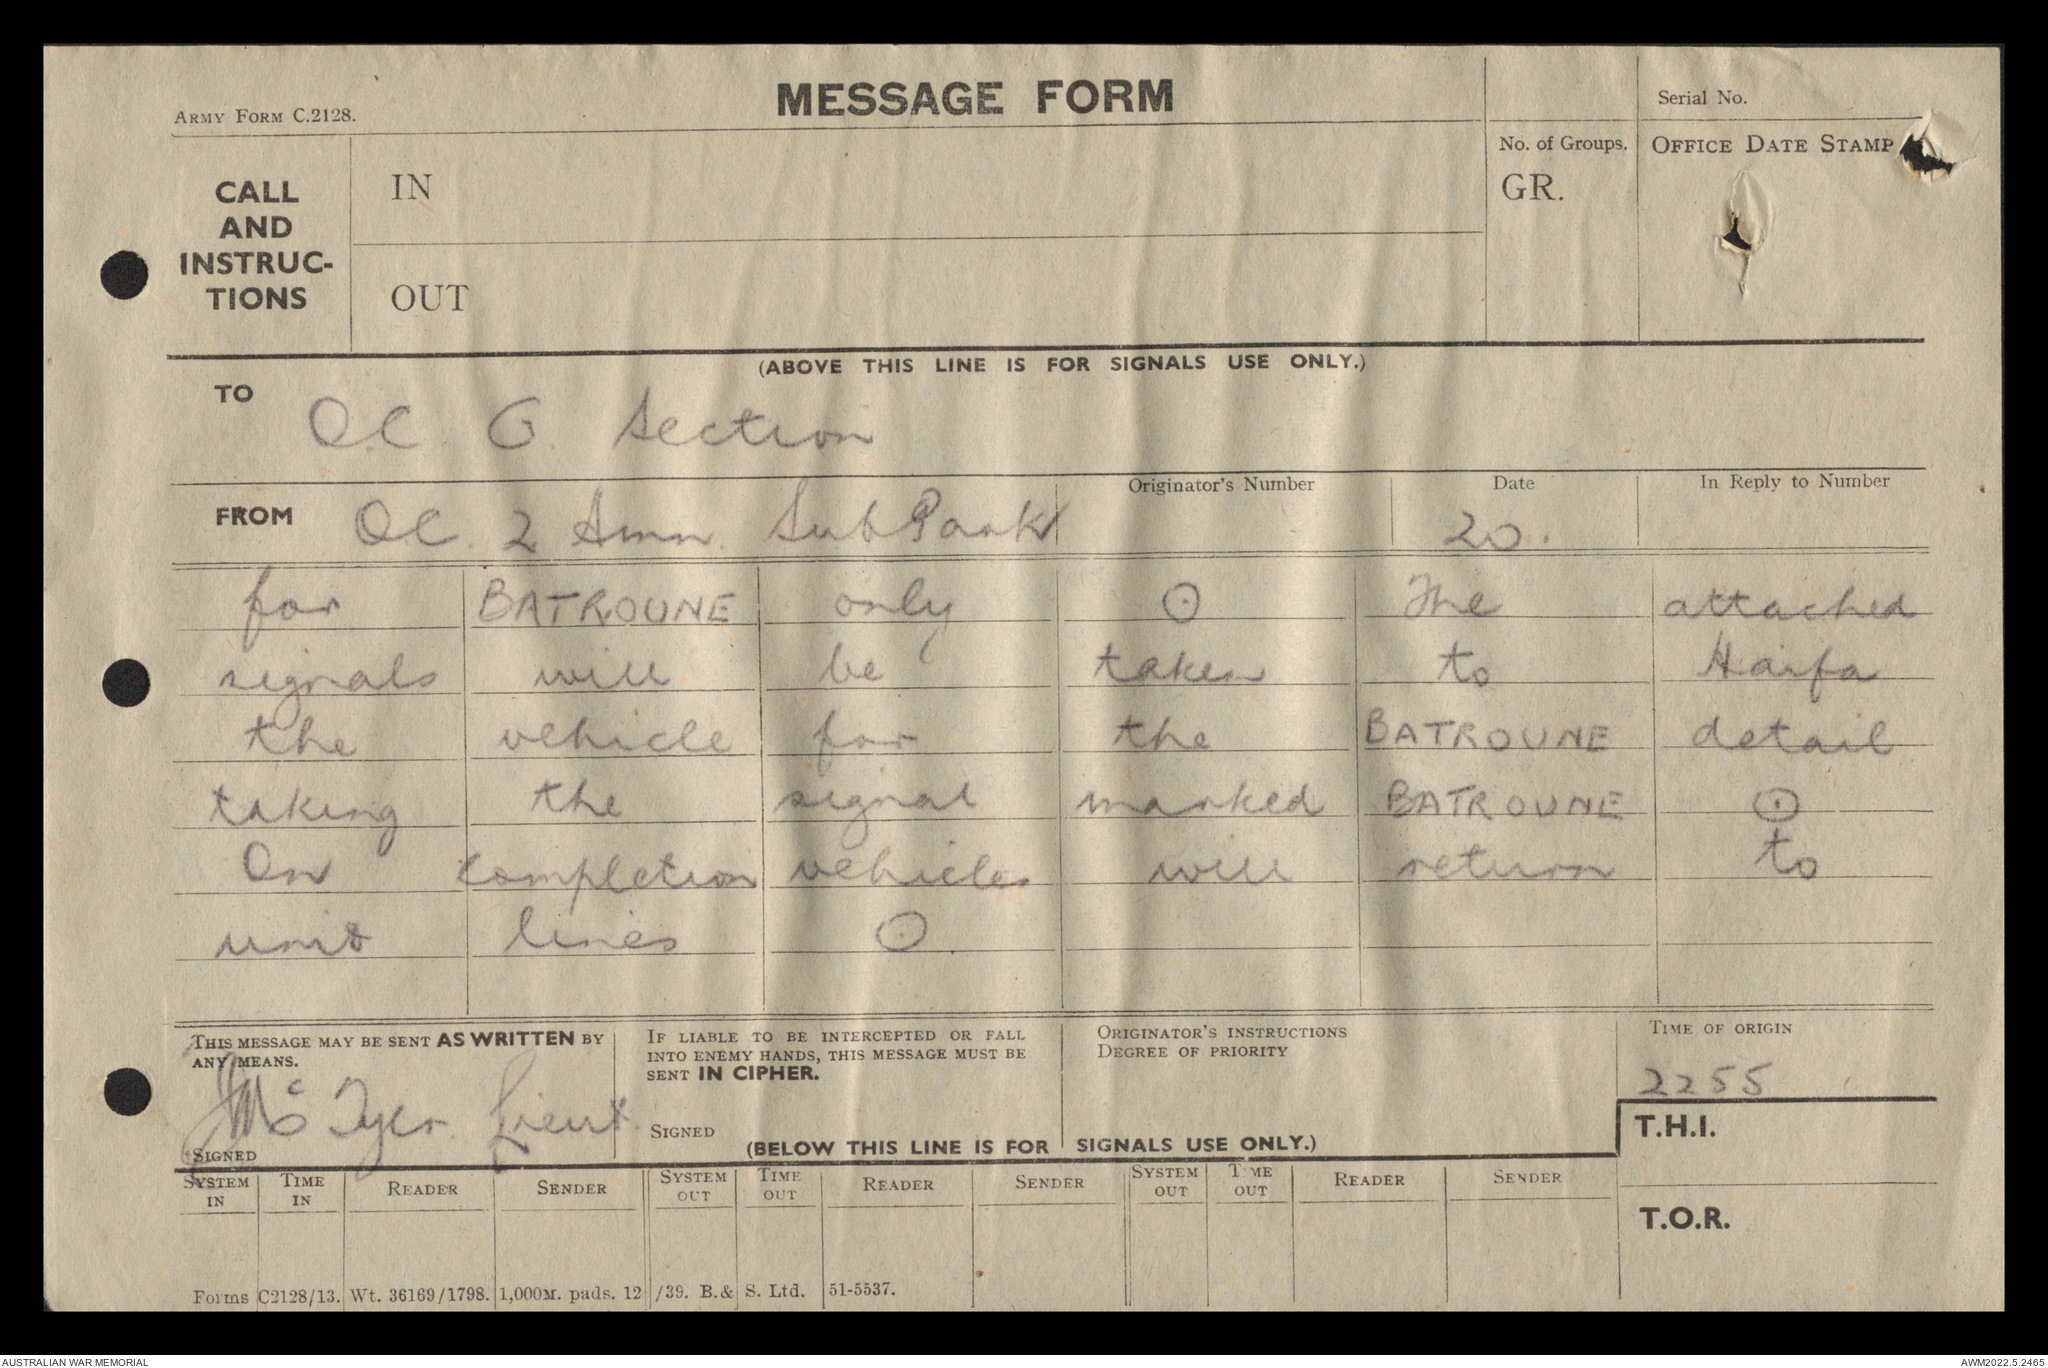 MESSAGE FORM
ARMY FORM C.2128.
Serial No.
CALL AND INSTRUC- TIONS
IN
No. of Groups.
GR.
OFFICE DATE STAMP
OUT
(ABOVE THIS LINE IS FOR SIGNALS USE ONLY.)
TO O.C. G. Section
FROM O.C. 2 Amn. Sub Park
Originator's Number
Date 20.
In Reply to Number
for BATROUNE only ⊙ The attached
signals will be taken to Haifa
the vehicle for the BATROUNE detail
taking the signal marked BATROUNE ⊙
On completion vehicles will return to
unit lines ⊙
THIS MESSAGE MAY BE SENT AS WRITTEN BY
ANY MEANS.
Lieut.
SIGNED
IF LIABLE TO BE INTERCEPTED OR FALL
INTO ENEMY HANDS, THIS MESSAGE MUST BE
SENT IN CIPHER.
SIGNED
ORIGINATOR'S INSTRUCTIONS
DEGREE OF PRIORITY
TIME OF ORIGIN
2255
T.H.I.
(BELOW THIS LINE IS FOR SIGNALS USE ONLY.)
SYSTEM IN TIME IN READER SENDER SYSTEM OUT TIME OUT READER SENDER SYSTEM OUT TIME OUT READER SENDER
T.O.R.
Forms C2128/13. Wt. 36169/1798. 1,000M. pads. 12/39. B.& S. Ltd. 51-5537.
AUSTRALIAN WAR MEMORIAL
AWM2022.5.2465